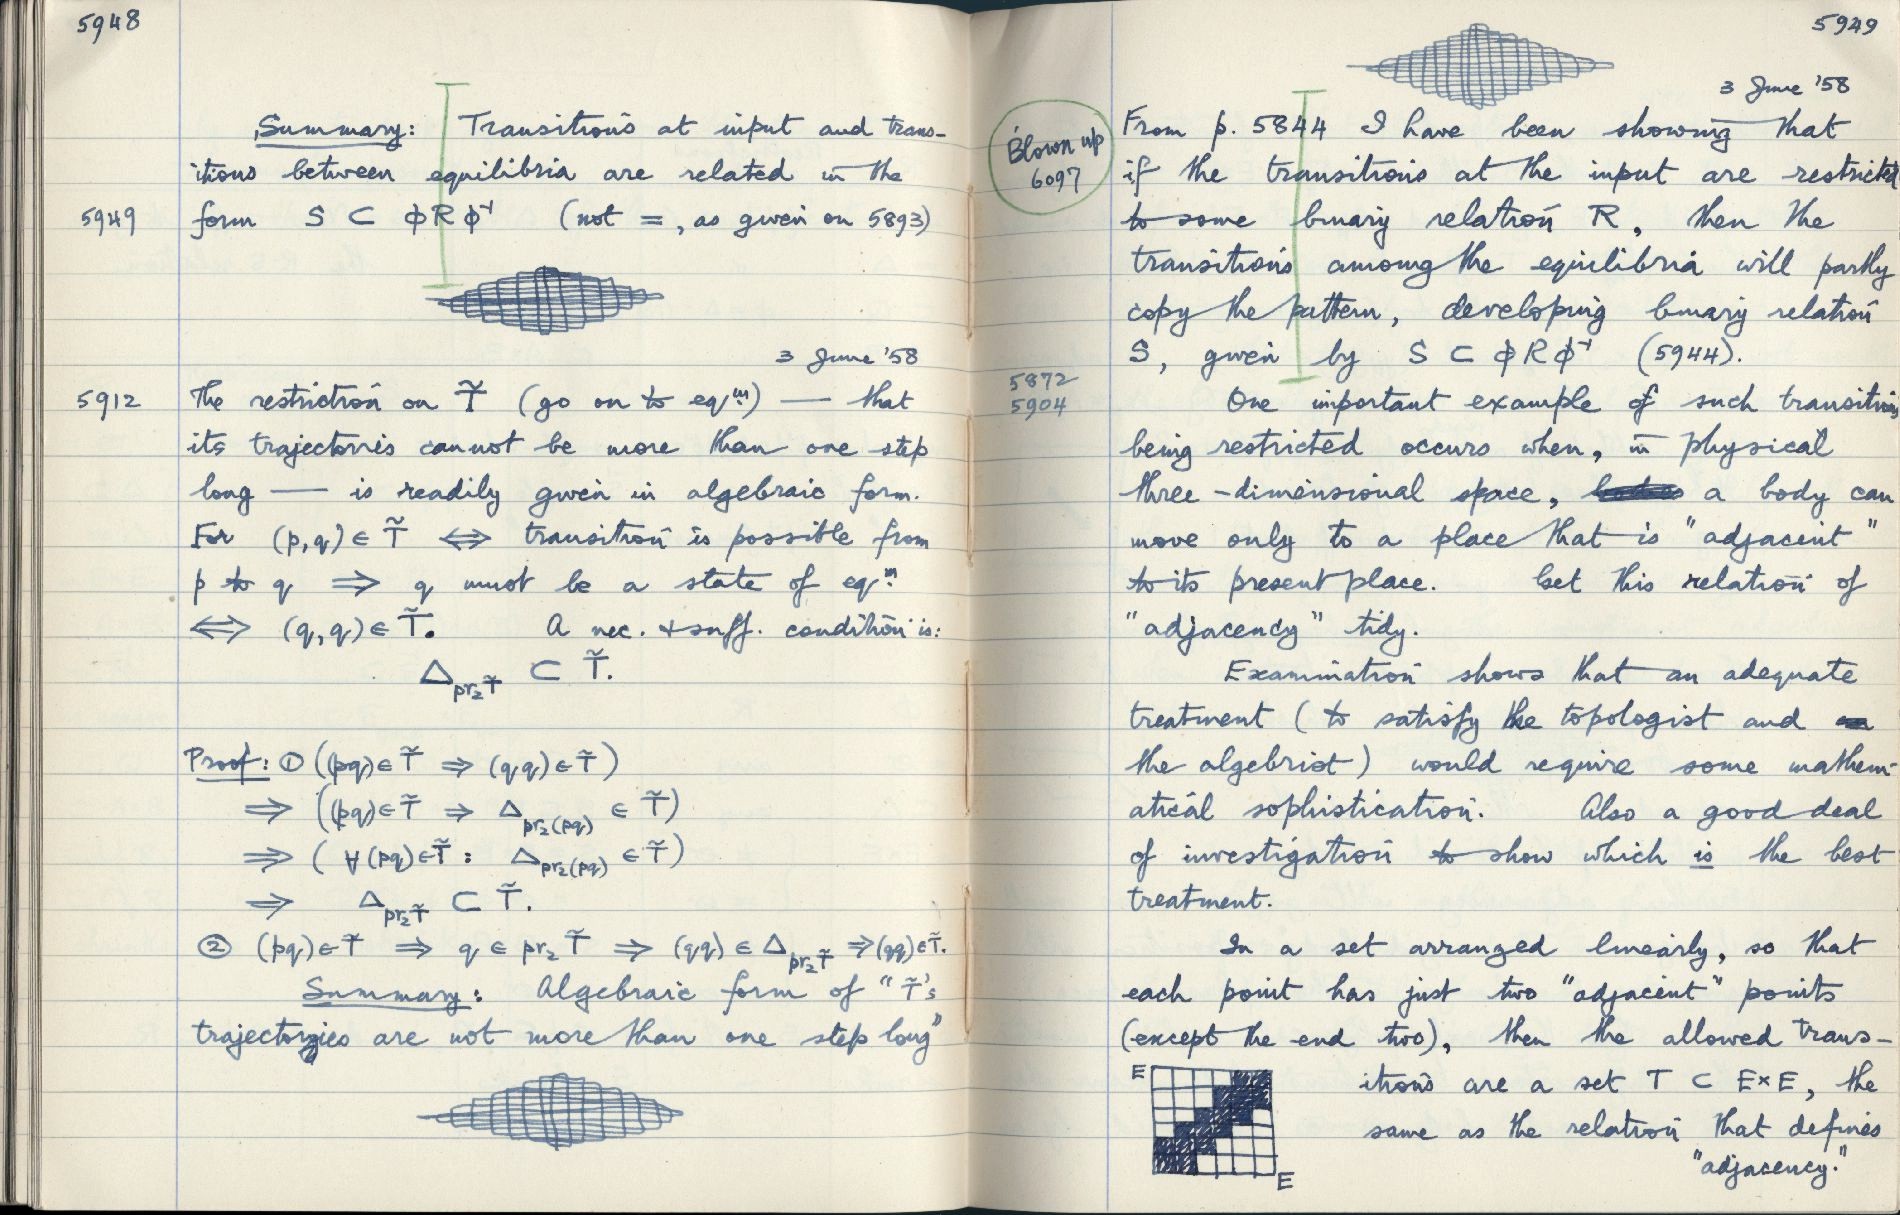 5948
Summary: Transitions at input and trans-
itions between equilibria are related in the
5949
form S ⊂ ϕRϕ⁻¹ (not =, as given on 5893)
3 June '58
5912
The restriction on T̃ (go on to eqᵐ) — that
its trajectories cannot be more than one step
long — is readily given in algebraic form.
For (p,q) ∈ T̃ ⇔ transition is possible from
p to q ⇒ q must be a state of eqᵐ
⇔ (q,q) ∈ T̃. A nec. & suff. condition is:
Δ_pr₂T̃ ⊂ T̃.
Proof: ① ((pq) ∈ T̃ ⇒ (qq) ∈ T̃)
⇒ ((pq) ∈ T̃ ⇒ Δ_pr₂(pq) ∈ T̃)
⇒ (∀(pq) ∈ T̃ : Δ_pr₂(pq) ∈ T̃)
⇒ Δ_pr₂T̃ ⊂ T̃.
② (pq) ∈ T̃ ⇒ q ∈ pr₂ T̃ ⇒ (qq) ∈ Δ_pr₂T̃ ⇒ (qq) ∈ T̃.
Summary: Algebraic form of "T̃'s
trajectories are not more than one step long"
5949
3 June '58
Blown up
6097
From p. 5844 I have been showing that
if the transitions at the input are restricted
to some binary relation R, then the
transitions among the equilibria will partly
copy the pattern, developing binary relation
S, given by S ⊂ ϕRϕ⁻¹ (5944).
5872
5904
One important example of such transitions
being restricted occurs when, in physical
three-dimensional space, a body can
move only to a place that is "adjacent"
to its present place. Get this relation of
"adjacency" tidy.
Examination shows that an adequate
treatment (to satisfy the topologist and
the algebraist) would require some mathem-
atical sophistication. Also a good deal
of investigation to show which is the best
treatment.
In a set arranged linearly, so that
each point has just two "adjacent" points
(except the end two), then the allowed trans-
E
itions are a set T ⊂ E×E, the
same as the relation that defines
"adjacency."
E